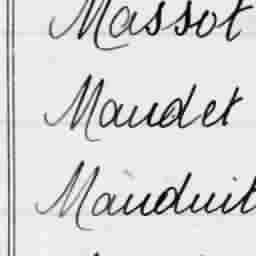 Massot
Maudet
Mauduit